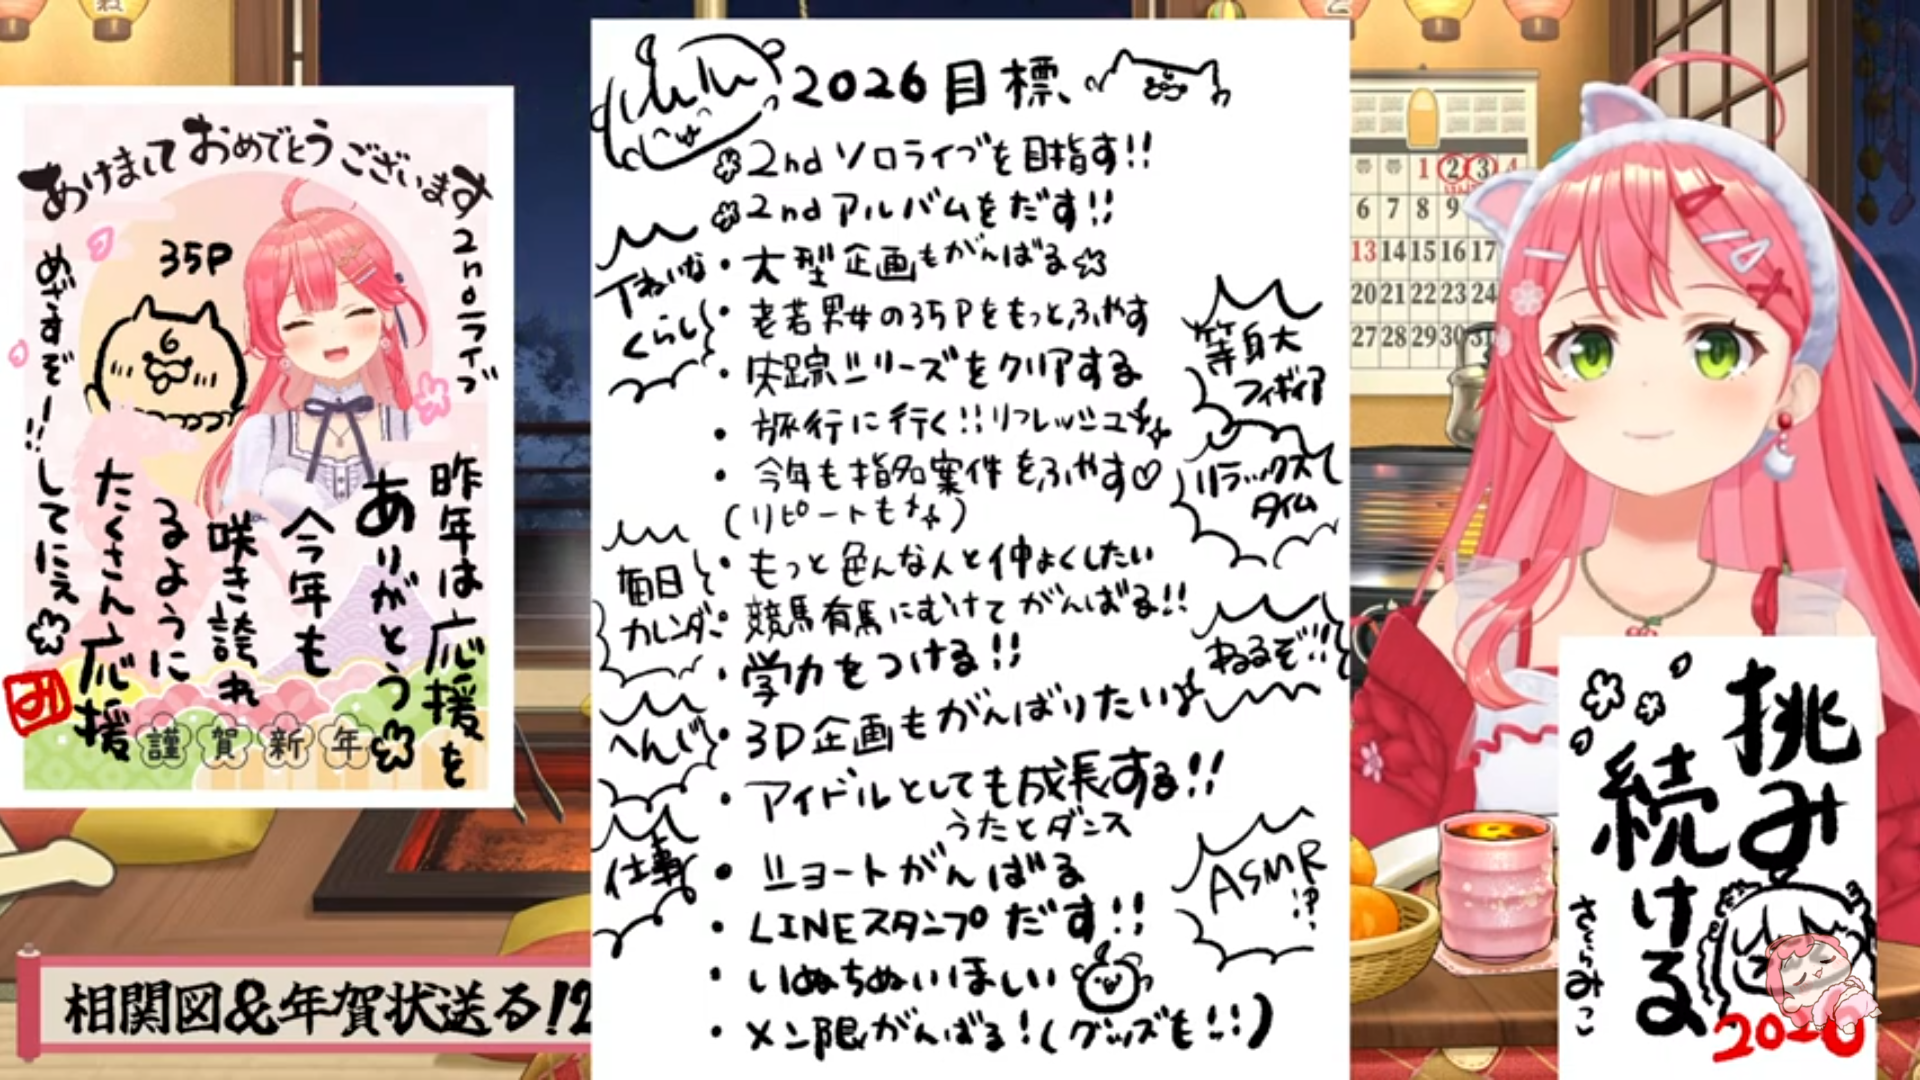 あけましておめでとうございます
35P
2ndライブ
めざすぞー!!
昨年は応援を
ありがとう
今年も
咲き誇れ
るように
たくさん応援
してにぇ
み
謹賀新年
相関図&年賀状送る!2
2026目標
2ndソロライブを目指す!!
2ndアルバムをだす!!
・大型企画もがんばる
・老若男女の35Pをもっとふやす
・失踪シリーズをクリアする
・旅行に行く!!リフレッシュ
・今年も指名案件をふやす♡
(リピートも)
・もっと色んな人と仲よくしたい
・競馬有馬にむけてがんばる!!
・学力をつける!!
・3D企画もがんばりたい
・アイドルとしても成長する!!
うたとダンス
・ショートがんばる
・LINEスタンプだす!!
・いぬちぬいほしい
・メン限がんばる!(グッズも!!)
ていねいな
くらし
毎日
カレンダー
へんじ
仕事
等身大
フィギュア
リラックス
タイム
ねるぞ!!
ASMR
!?
1 2 3 4
6 7 8 9
13 14 15 16 17
20 21 22 23 24
27 28 29 30 31
挑み
続ける
さくらみこ
2026